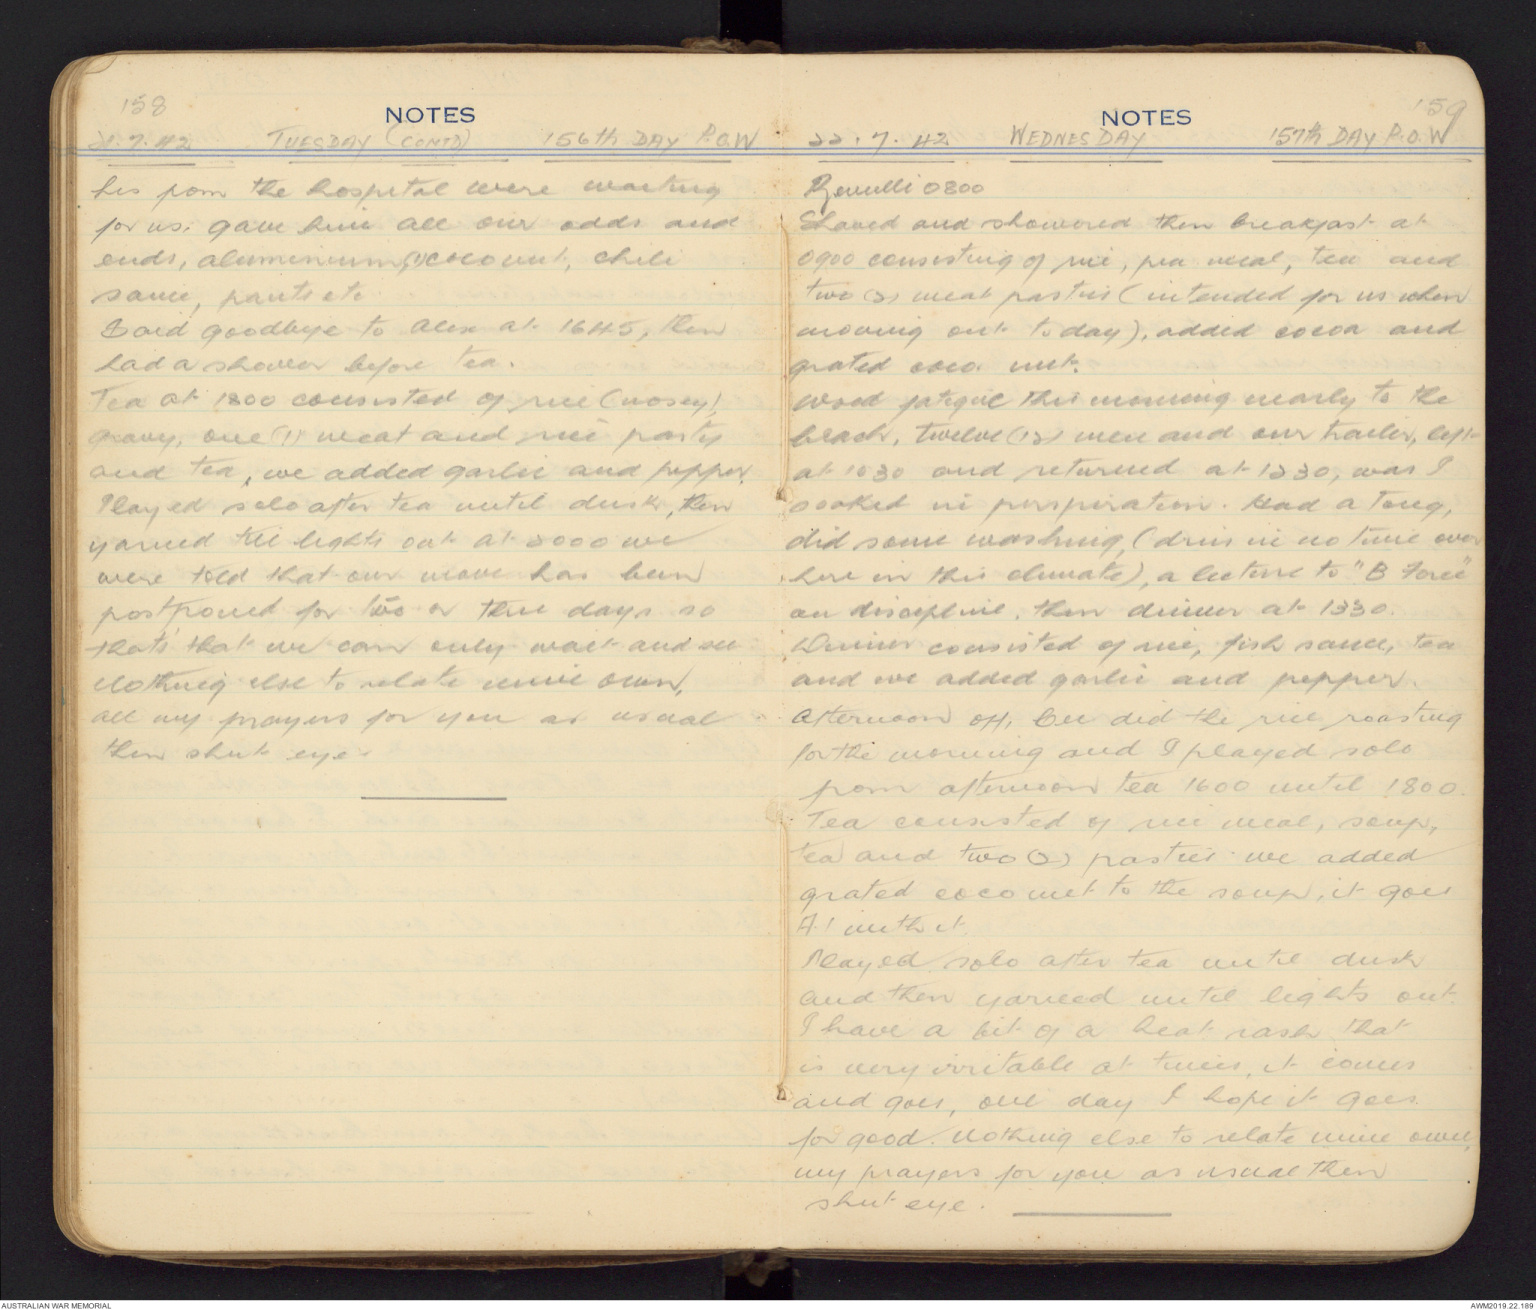 158
NOTES
21.7.42 TUESDAY (CONTD) 156th DAY P.O.W
his from the hospital were waiting
for us, gave him all our odds and
ends, aluminium, (1) coconut, chili
sauce, pants etc
Said goodbye to Alex at 1645, then
had a shower before tea.
Tea at 1800 consisted of rice (nasey),
gravy, one (1) meat and rice pasty
and tea, we added garlic and pepper.
Played solo after tea until dusk, then
yarned till lights out at 2000 we
were told that our move has been
postponed for two or three days so
thats that we can only wait and see
Nothing else to relate mine own,
all my prayers for you as usual
then shut eye.
159
NOTES
22.7.42 WEDNESDAY 157th DAY P.O.W
Revelli 0800
Shaved and showered then breakfast at
0900 consisting of rice, pea meal, tea and
two (2) meat pasties (intended for us when
moving out today), added cocoa and
grated coco nut.
Wood fatigue this morning nearly to the
beach, twelve (12) men and our trailer, left
at 1030 and returned at 1230, was I
soaked in perspiration. Had a tong,
did some washing, (dries in no time over
here in this climate), a lecture to "B Force"
on discipline, then dinner at 1330.
Dinner consisted of rice, fish sauce, tea
and we added garlic and pepper.
Afternoon off, did the rice roasting
for the morning and I played solo
from afternoon tea 1600 until 1800.
Tea consisted of rice meal, soup,
tea and two (2) pasties we added
grated coco nut to the soup, it goes
A.1 with it.
Played solo after tea until dusk
and then yarned until lights out.
I have a bit of a heat rash that
is very irritable at times, it comes
and goes, one day I hope it goes
for good. Nothing else to relate mine own,
my prayers for you as usual then
shut eye.
AUSTRALIAN WAR MEMORIAL
AWM2019.22.189